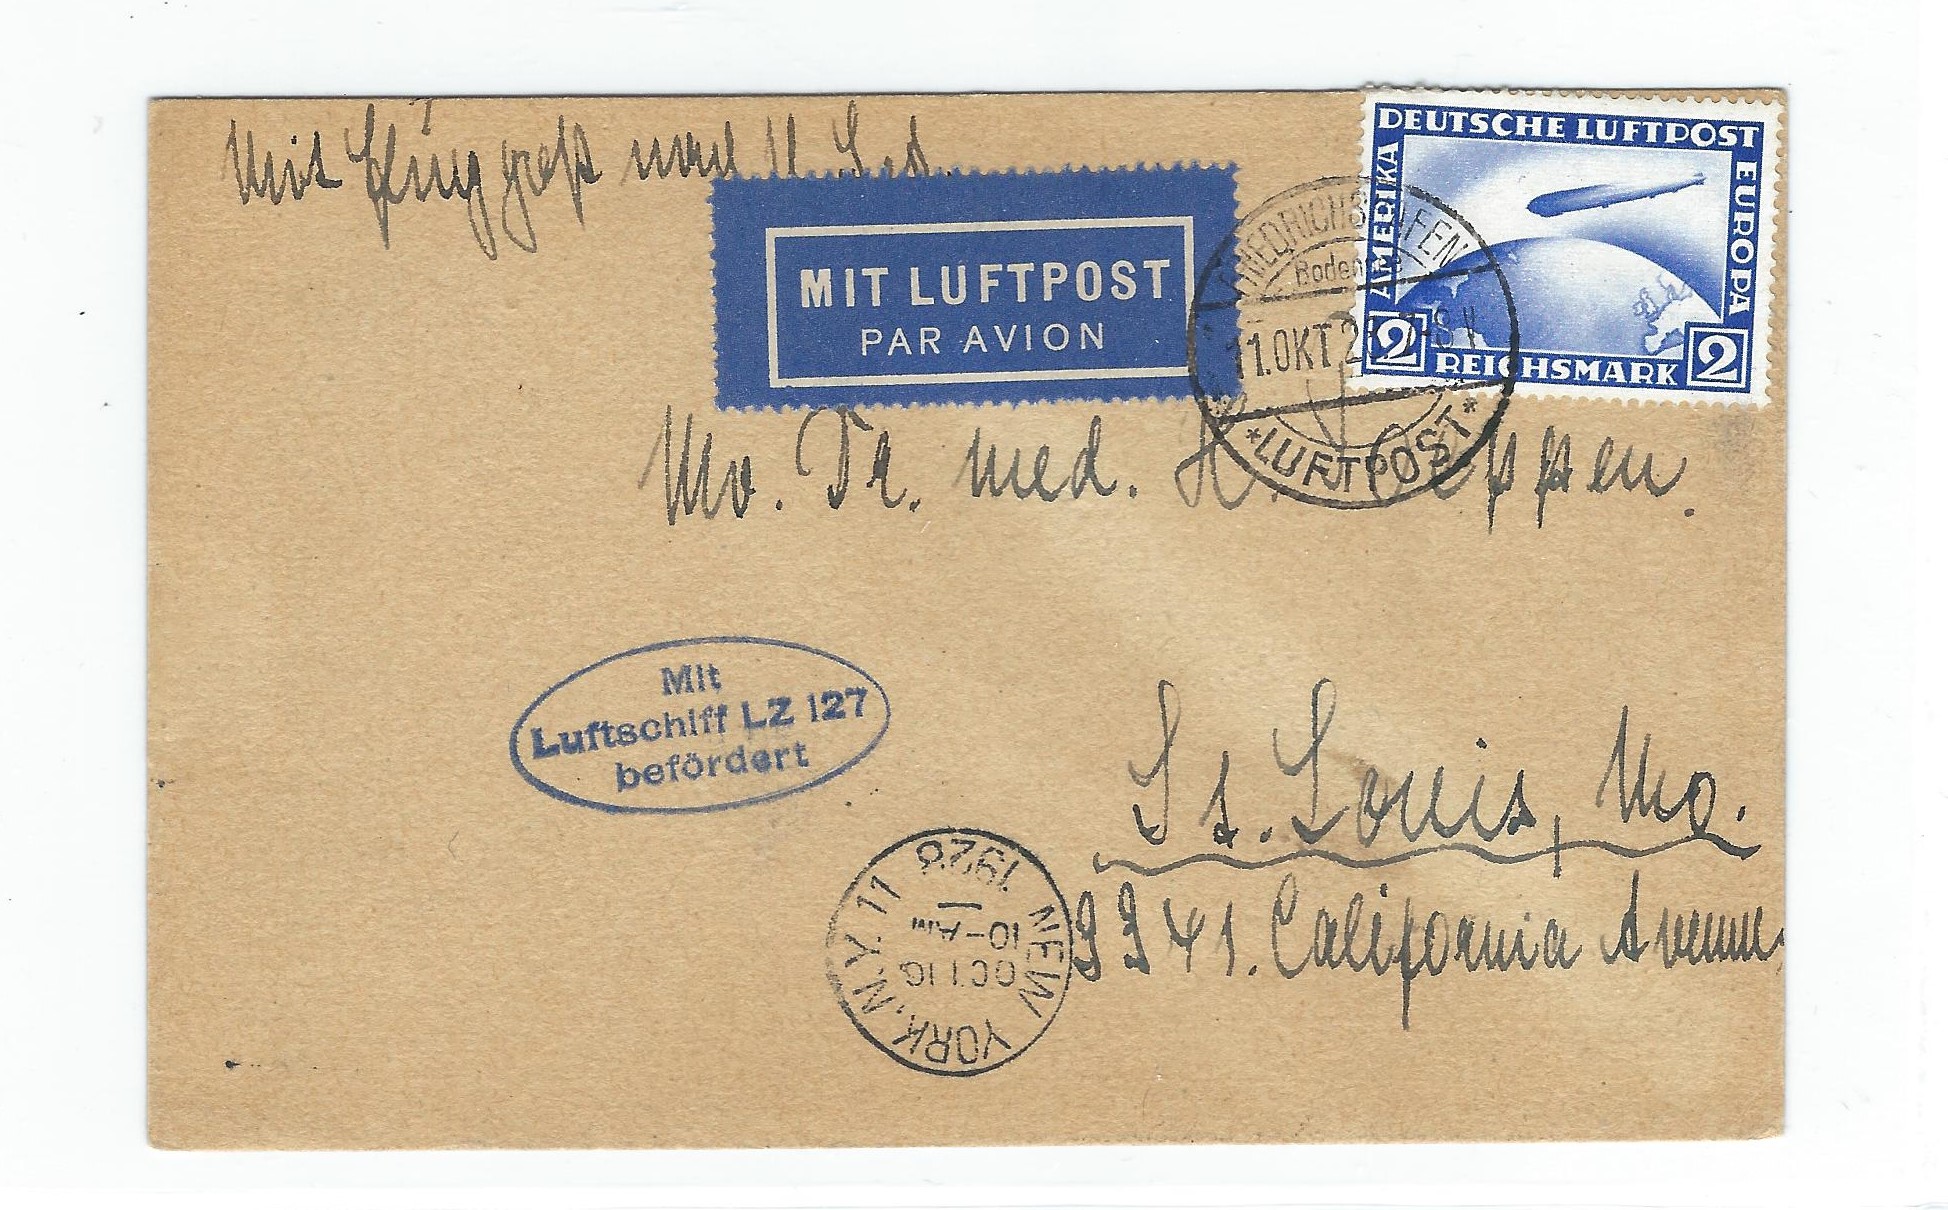 Mit
DEUTSCHE LUFTPOST
AMERIKA
EUROPA
2 REICHSMARK 2
MIT LUFTPOST
PAR AVION
FRIEDRICHSHAFEN
Bodensee
11.OKT 28.7-8 V
*LUFTPOST*
Dr. med. H.
Mit
Luftschiff LZ 127
befördert
St. Louis, Mo.
3341. California Avenue
NEW YORK, N.Y. 11
OCT 16
10-AM
1928